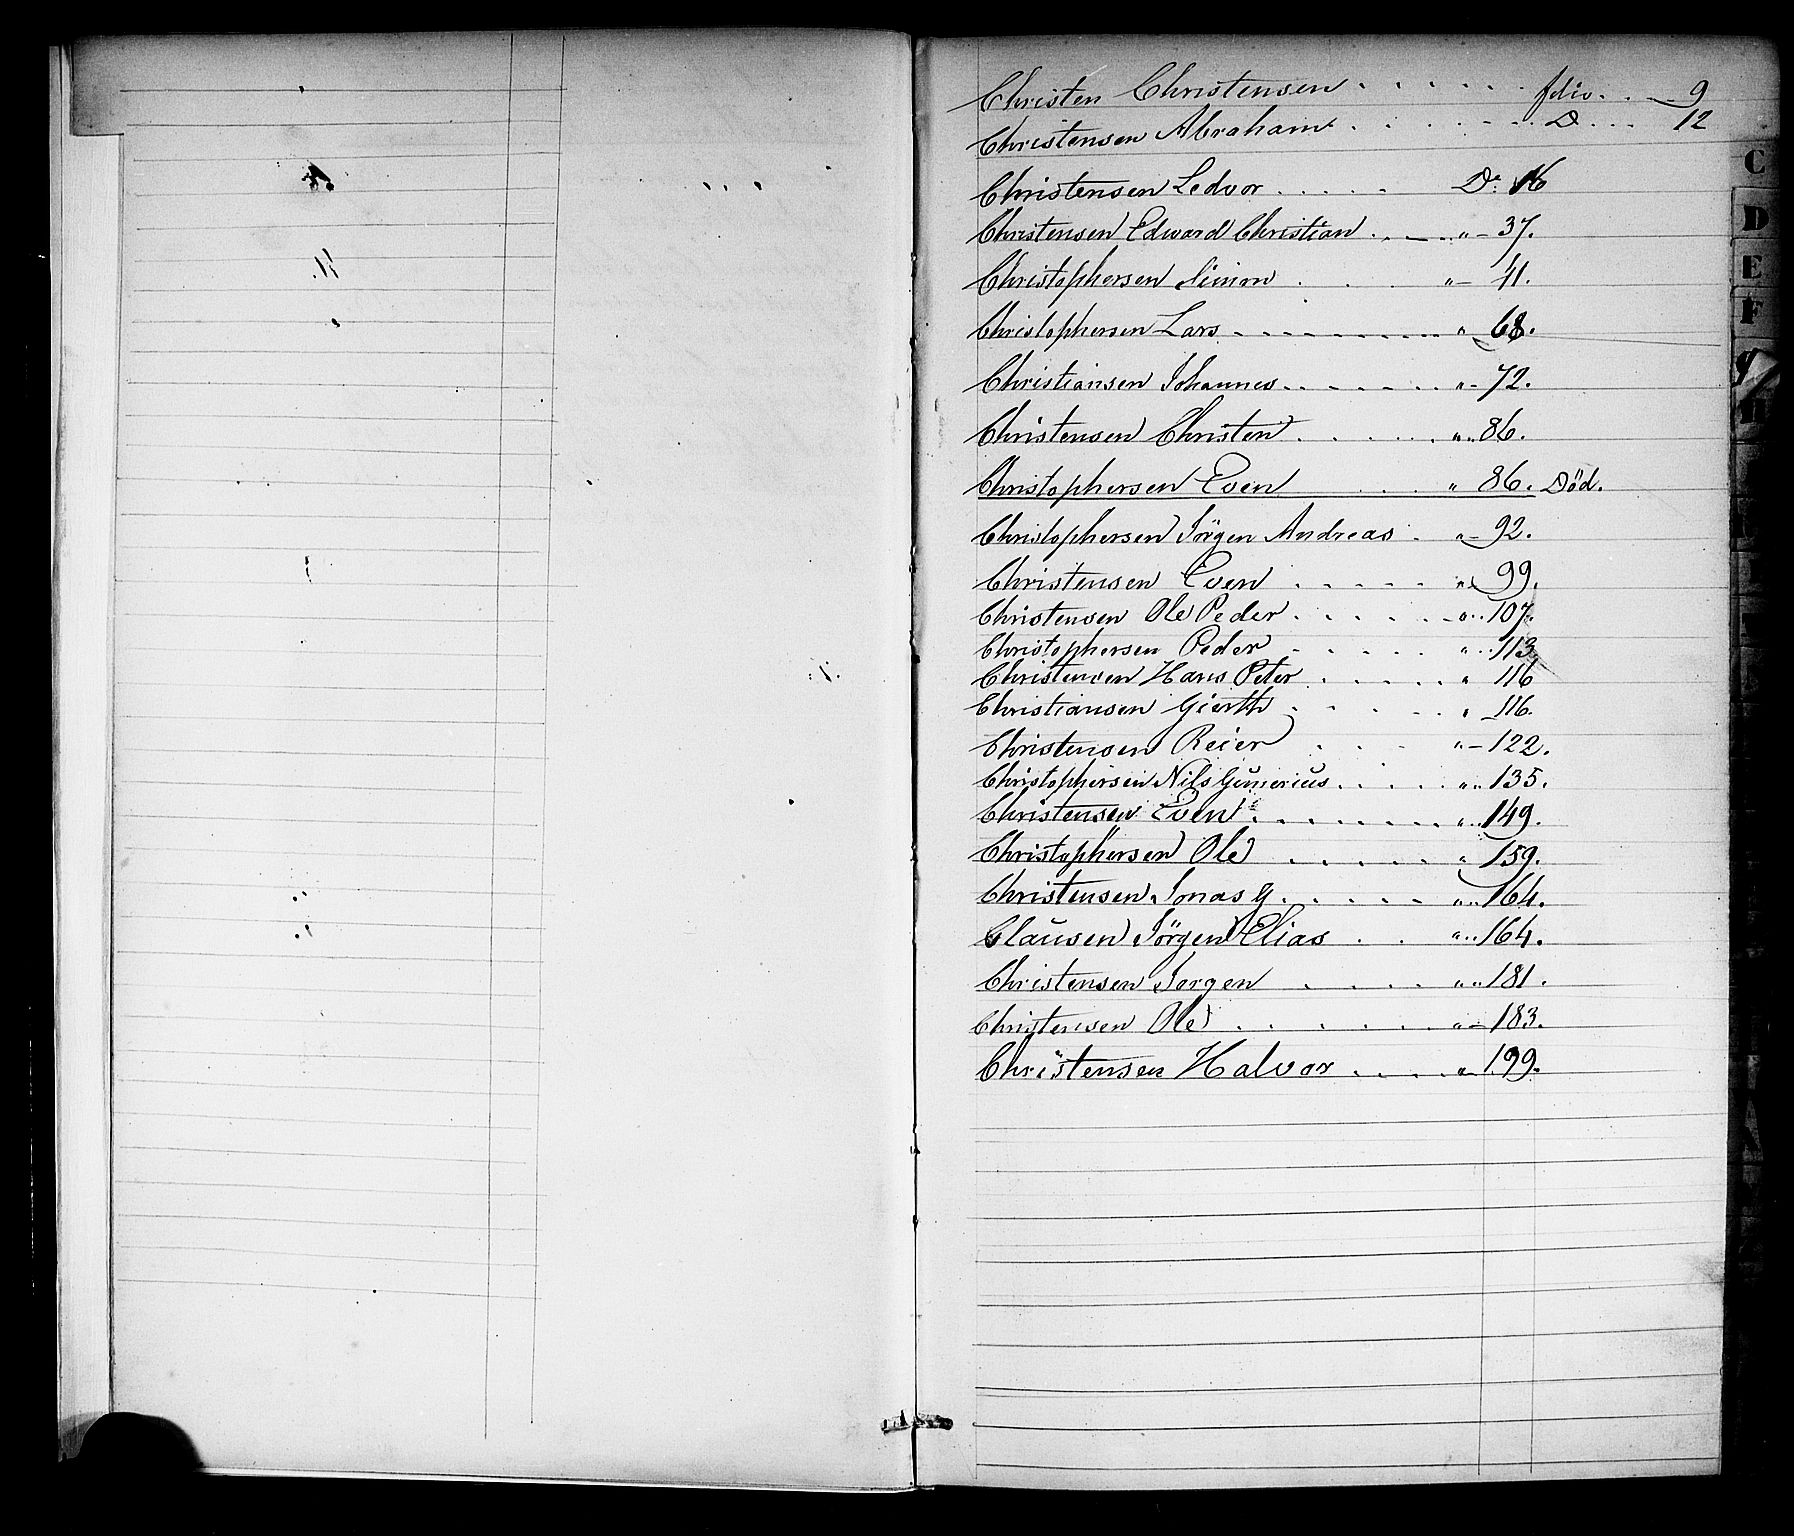 Christen Christensen . . . . . . fdio. . . 9
Christensen Abraham . . . . . . D . . . 12
Christensen Ledvor . . . . . Do: 16
Christensen Edward Christian . . . „ 37.
Christophersen Simon . . . „ 41.
Christophersen Lars . . . . . . „ 68.
Christiansen Johannes . . . . . . „ 72.
Christensen Christen . . . . . „ 86.
Christophersen Even . . . „ 86. Död.
Christophersen Jörgen Andreas . „ 92.
Christensen Even . . . . . „ 99.
Christensen Ole Peder . . . . . „ 107.
Christophersen Peder . . . . . „ 113
Christensen Hans Peter . . . . . „ 116
Christiansen Gierth . . . . „ 116.
Christensen Reier . . . „ 122.
Christophersen Nils Gumerius . . . . „ 135.
Christensen Even . . . . . . . „ 149.
Christophersen Ole . . . . . „ 159.
Christensen Jonas G. . . . . . „ 164.
Clausen Jörgen Elias . . „ 164.
Christensen Jorgen . . . . „ 181.
Christensen Ole . . . . . . „ 183.
Christensen Halvor . . . . „ 199.
C
D
E
F